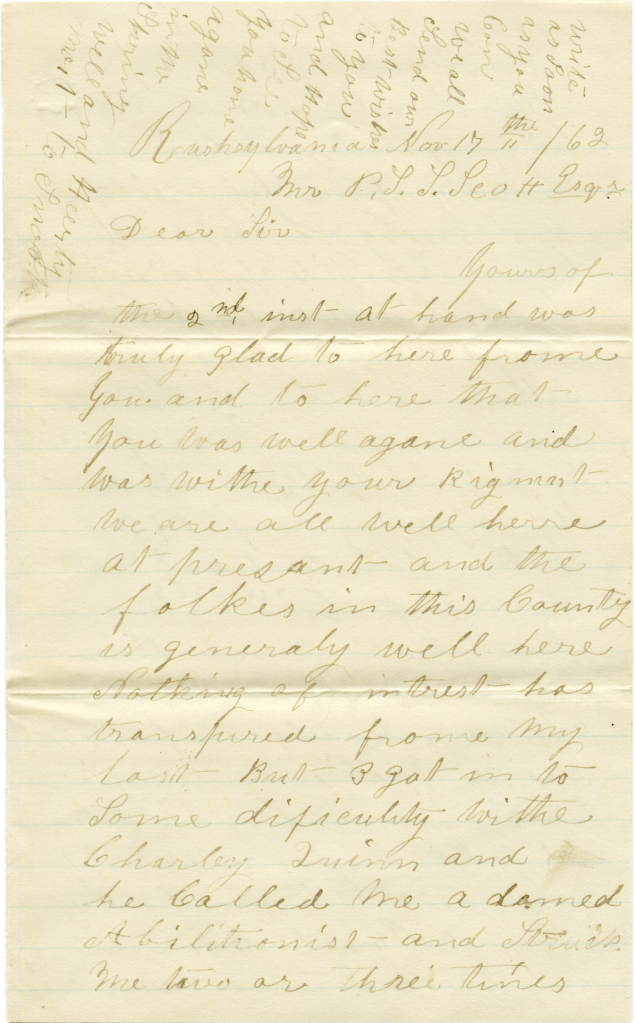 write
as soon
as you
Can
we all
Send our
best wishes
to you
and hope
to See
you home
agane
in the
Spring
well and Hearty
Rushsylvania Nov 17 the /62
Mr P. S. S. Scott Esqr
Dear Sir
Yours of
the 2nd, inst at hand was
truly glad to here frome
you and to here that
you was well agane and
was withe your Rigmnt
we are all well herre
at presant and the
folkes in this County
is generaly well here
Nothing of intrest has
transpured frome my
last But I got in to
Some dificulty withe
Charley Quinn and
he Called me a damed
Abilitionist and Struck
me two or three times